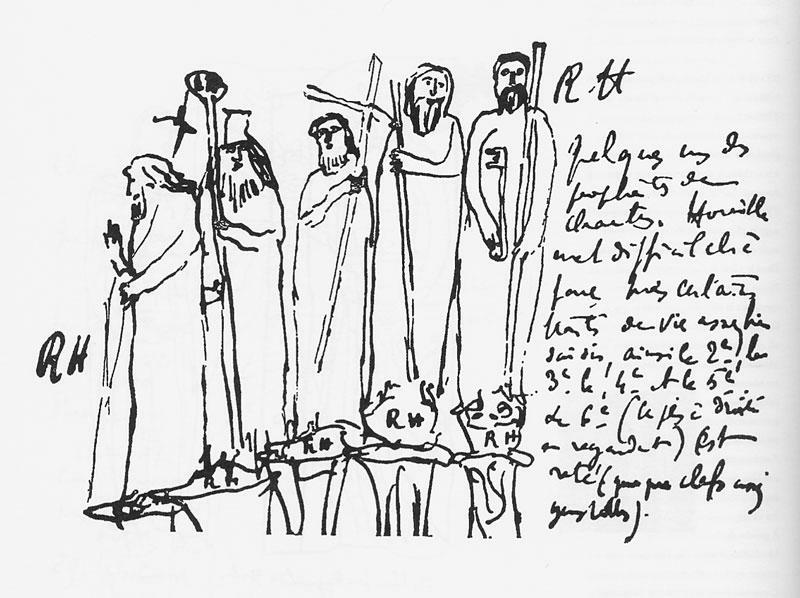 R H
quelques uns des
prophètes de
Chartres. Horrible
ment difficile à
faire mais certains
traits de vie assez bien
saisis, ainsi le 2e, le
3e le 4e et le 5e
le 6e (le plus à droite
en regardant) est
raté (quoique clefs assez
R H
R H
R H
R H
R H